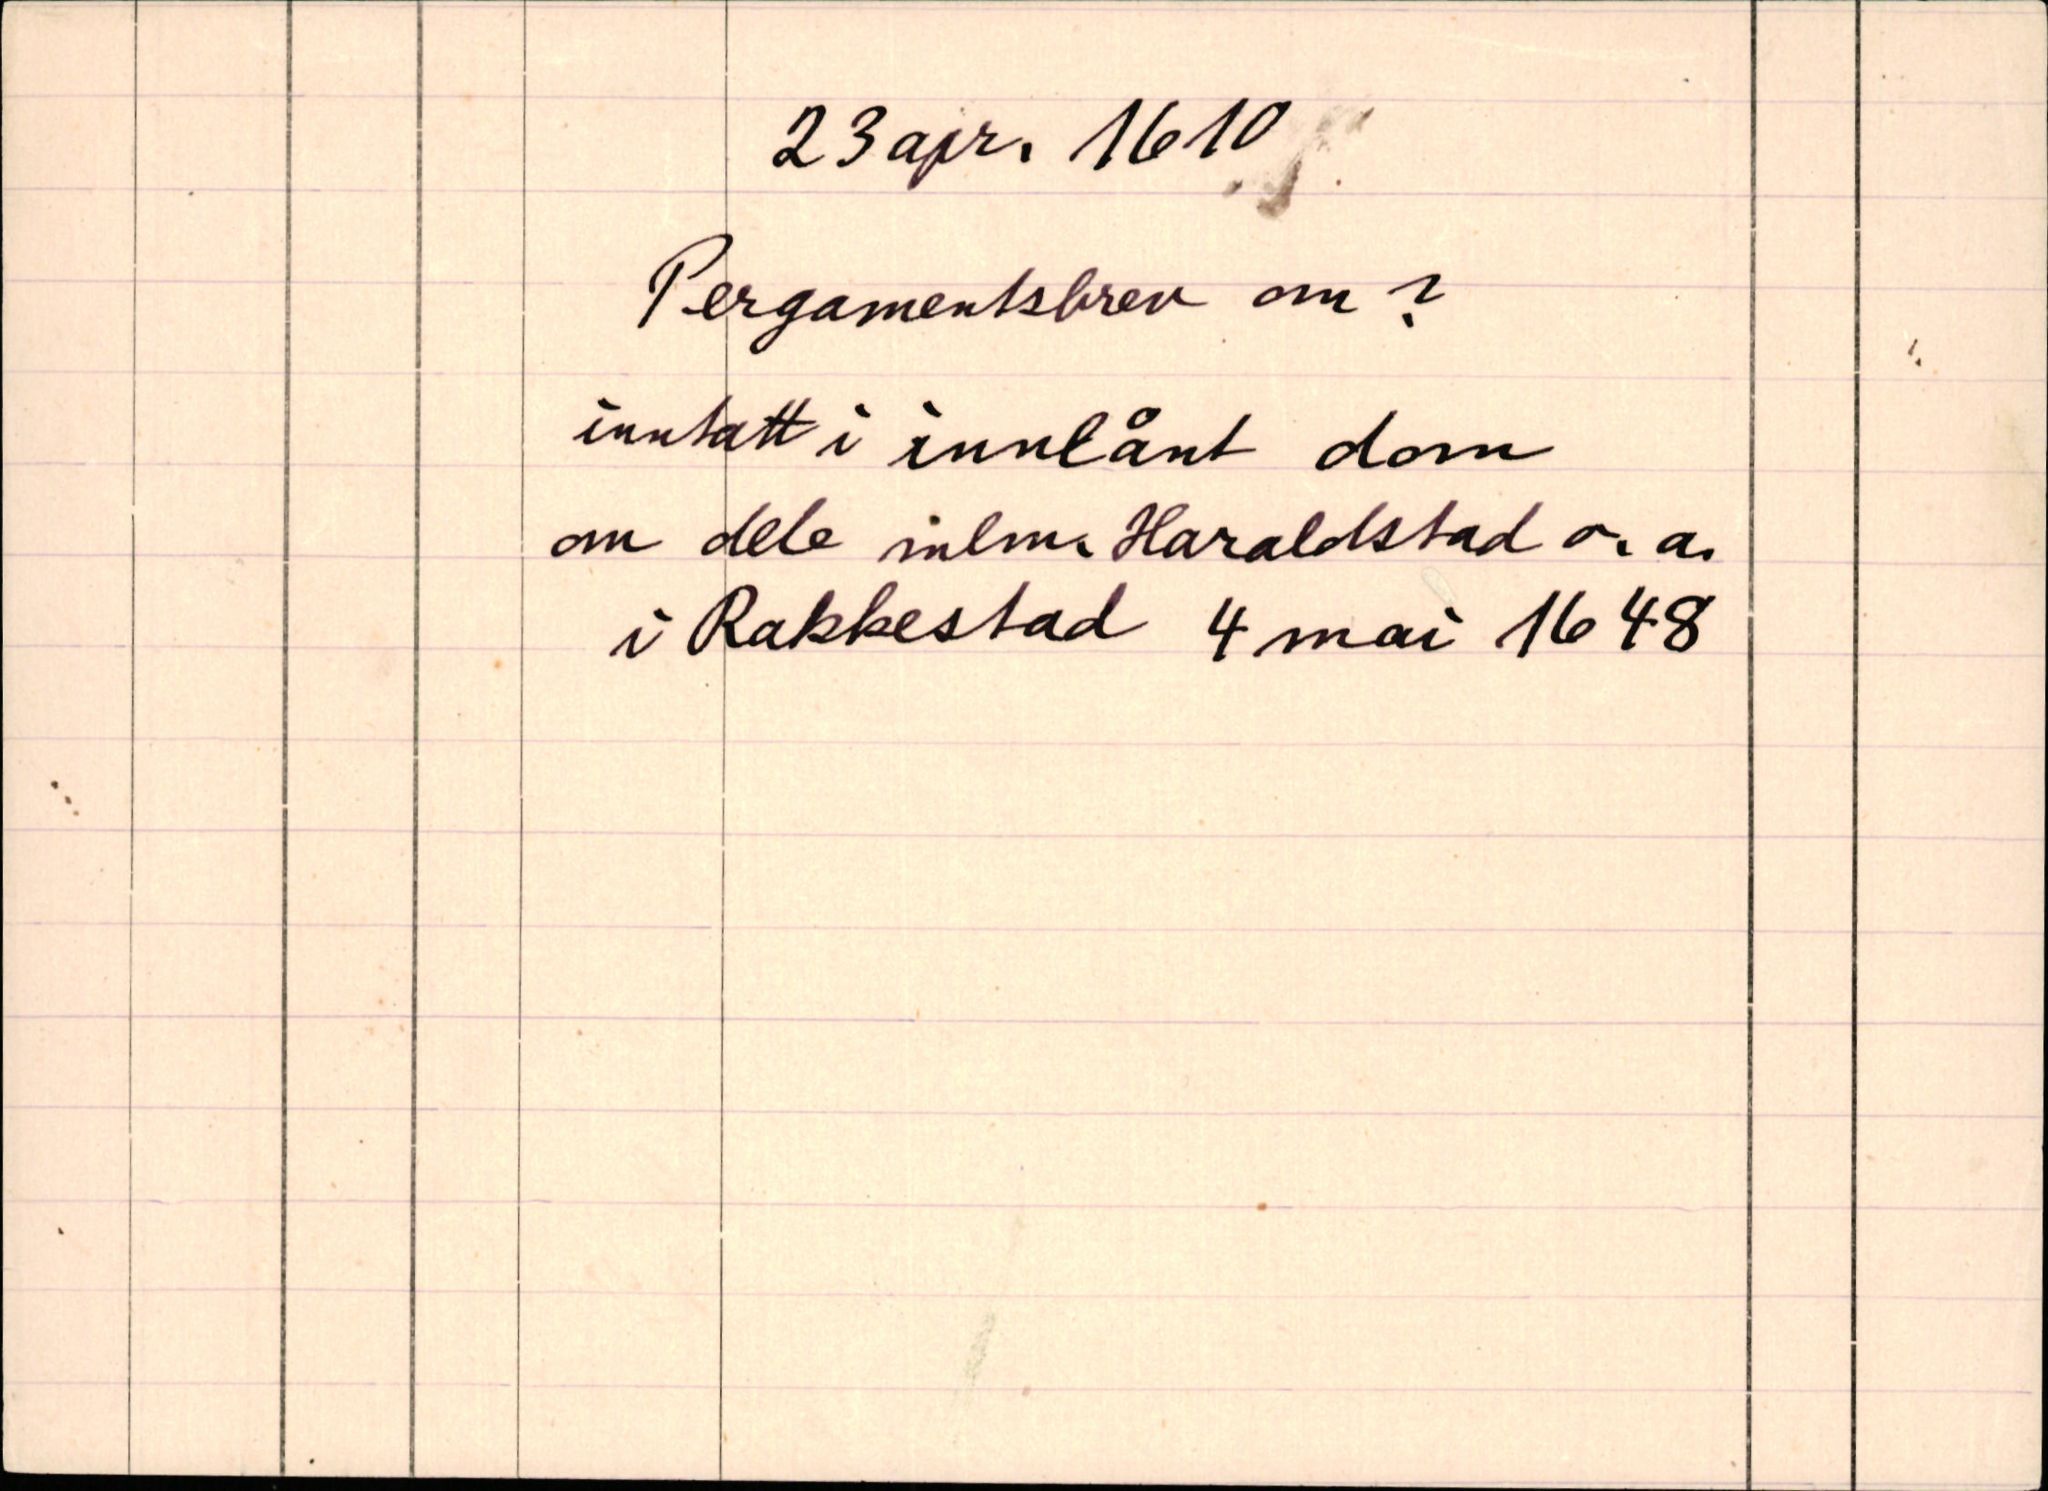 23 apr. 1610
Pergamentsbrev om ?
inntatt i innlånt dom
om dele mlm. Haraldstad o. a.
i Rakkestad 4 mai 1648